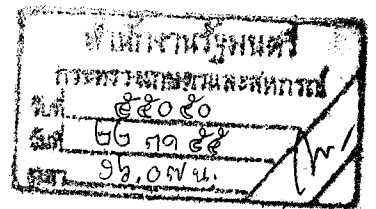 สำนักงานรัฐมนตรี
กระทรวงเกษตรและสหกรณ์
รับที่ ๕๕๐๕๐
วันที่
เวลา ๑๖.๐๗ น.